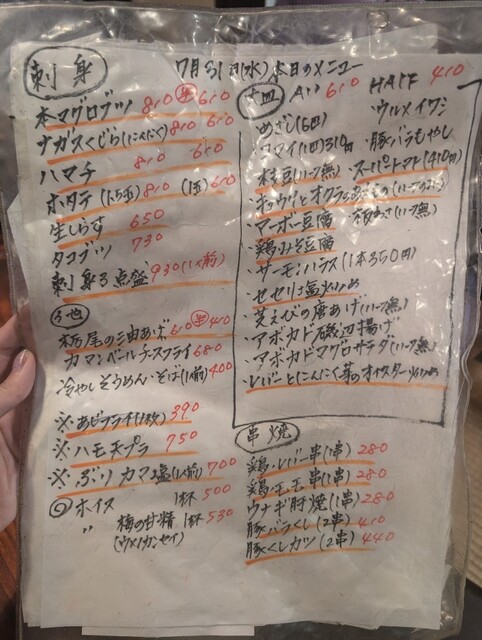 7月31日(水) 本日のメニュー
刺身
本マグロブツ 810 半 610
ナガスくじら(にんにく) 810 610
ハマチ 810 610
ホタテ 810 610
生しらす 650
タコブツ 730
刺身3点盛 930(1人前)
その他
栃尾の油あげ 610 半 410
カマンベールチーズフライ 680
冷やしそうめん・そば(1人前) 400
※アジフライ 390
※ハモ天プラ 750
※ぶりカマ塩(1人前) 700
◎ホイス 1杯 500
〃 梅の甘精 1杯 530
(ウメノカンセイ)
皿 All 610 HAlF 410
・めざし(6匹) ・ウルメイワシ
・コマイ(1匹)310円 ・豚バラもやし
・枝豆(ハーフ無) ・スーパートマト(410円)
・マーボー豆腐
・鶏みそ豆腐
・サーモンハラス(1本350円)
・セセリ塩炒め
・芝えびの唐あげ(ハーフ無)
・アボカド磯辺揚げ
・アボカドマグロサラダ(ハーフ無)
・レバーとにんにく芽のオイスター炒め
串焼
鶏・レバー串(1串) 280
鶏・モモ串(1串) 280
ウナギ肝焼(1串) 280
豚バラくし(2串) 410
豚くしカツ(2串) 440